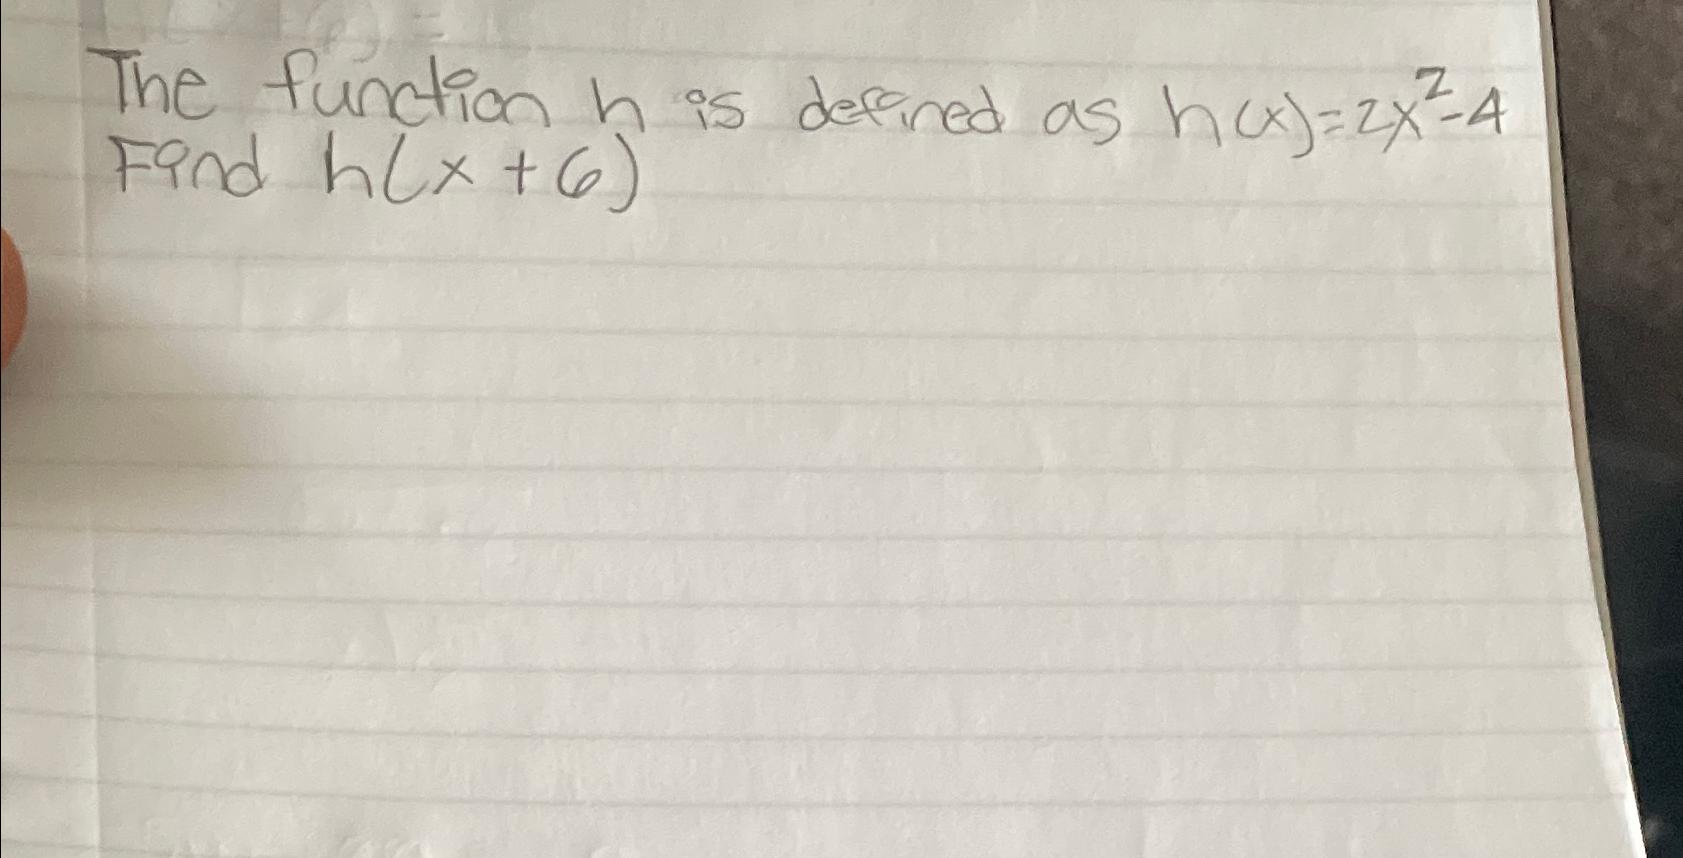 The function h is defined as h(x)=2x²-4
Find h(x+6)